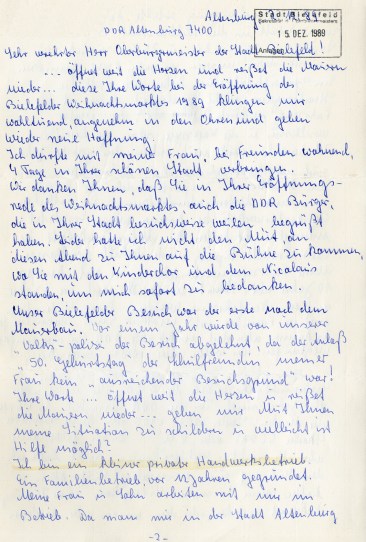 Altenburg
DDR Altenburg 7400
Stadt Bielefeld
15. DEZ. 1989
Anlagen
Sehr verehrter Herr Oberbürgermeister der Stadt Bielefeld!
... öffnet weit die Herzen und reißet die Mauern
nieder... diese Ihre Worte bei der Eröffnung des
Bielefelder Weihnachtsmarktes 1989 klingen mir
wohltuend, angenehm in den Ohren und geben
wieder neue Hoffnung.
Ich durfte mit meiner Frau, bei Freunden wohnend,
4 Tage in Ihrer schönen Stadt verbringen.
Wir danken Ihnen, daß Sie in Ihrer Eröffnungs-
rede des Weihnachtsmarktes, auch die DDR Bürger,
die in Ihrer Stadt besuchsweise weilen begrüßt
haben. Leider hatte ich nicht den Mut, an
diesen Abend zu Ihnen auf die Bühne zu kommen,
wo Sie mit den Kinderchor und dem Nicolaus
standen, um mich sofort zu bedanken.
Unser Bielefelder Besuch war der erste nach dem
Mauerbau. Vor einem Jahr wurde von unserer
"Volks"-polizei der Besuch abgelehnt, da der Anlaß
"50. Geburtstag" der Schulfreundin meiner
Frau kein "ausreichender Besuchsgrund" war!
Ihre Worte ... öffnet weit die Herzen u reißet
die Mauern nieder... geben mir Mut Ihnen
meine Situation zu schildern u vielleicht ist
Hilfe möglich?
Ich bin ein kleiner privater Handwerksbetrieb.
Ein Familienbetrieb, vor Jahren gegründet.
Meine Frau u Sohn arbeiten mit mir im
Betrieb. Da man mir in der Stadt Altenburg
-2-